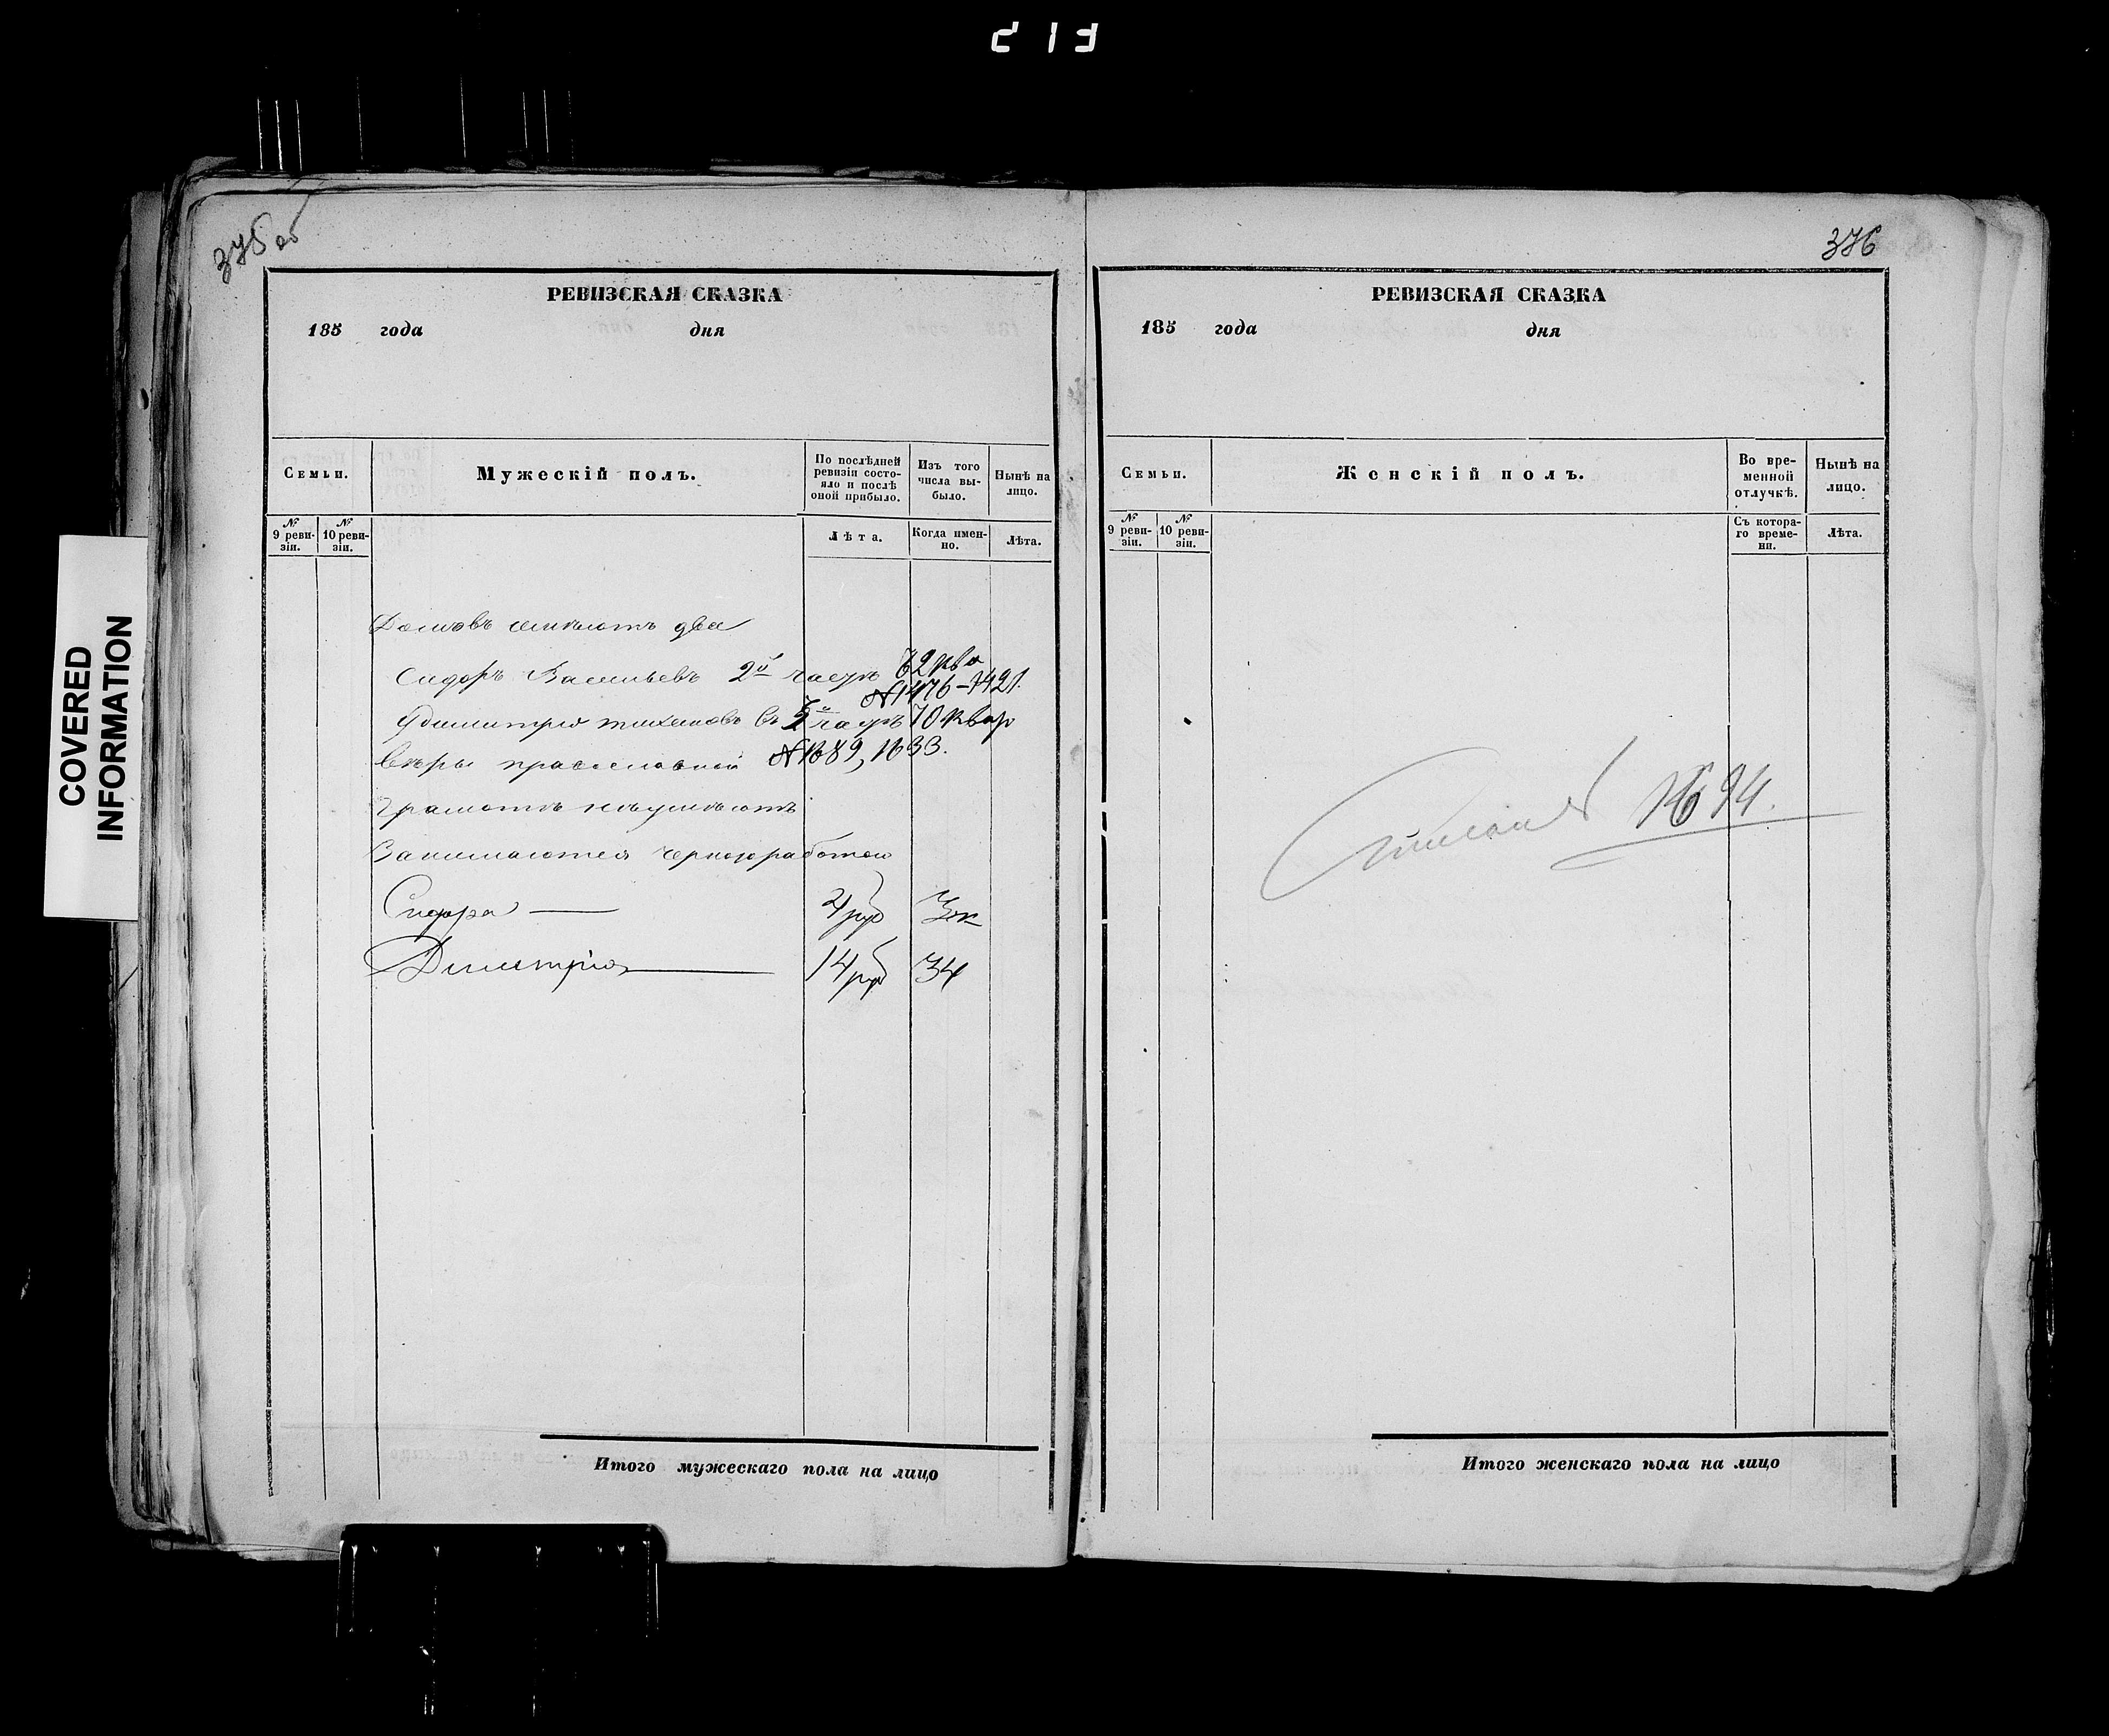 213
COVERED
INFORMATION
375 об
РЕВИЗСКАЯ СКАЗКА
185 года дня
Семьи.
Мужескій полъ.
По послѣдней ревизіи состо-
яло и послѣ оной прибыло.
Изъ того числа вы-
было.
Нынѣ на лицо.
№ 9 реви-
зіи.
№ 10 реви-
зіи.
Лѣта.
Когда имен-
но.
Лѣта.
Домовъ имѣютъ два
Сидоръ Васильевъ 2й части 62 ква
№ 1476-1421.
Димитрий въ 2й части 70 квар
№ 1689, 1633.
Вѣры православной
Грамотѣ неумѣютъ
Занимаются черноработой
Сидора — 4 руб 3 к
Димитрія — 14 руб 34
Итого мужескаго пола на лицо
376
РЕВИЗСКАЯ СКАЗКА
185 года дня
Семьи.
Женскій полъ.
Во вре-
менной
отлучкѣ.
Нынѣ на
лицо.
№ 9 реви-
зіи.
№ 10 реви-
зіи.
Съ котора-
го време-
ни.
Лѣта.
1694.
Итого женскаго пола на лицо